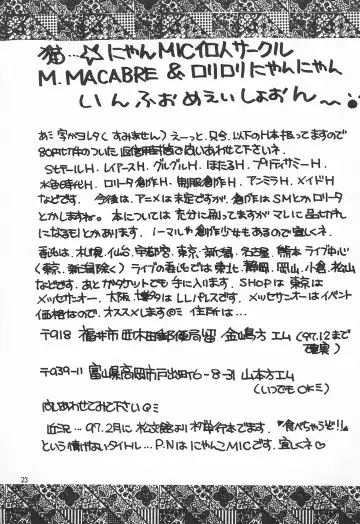 猫…☆にゃんMICイロ人サークル
M.MACABRE & ロリロリにゃんにゃん
いんふぉめえいしょおん〜
あミ字がヨレタ(すみません)えーっと、只今、以下のH本扱ってますので
80円切手のついた返信用封筒で問いあわせて下さいネ。
SセーラーH. レイアースH. グルグルH. ほたるH. プリティサミーH.
水色時代H. ロリータ創作H. 制服創作H. アンミラH. メイドH
などです。 今後は、アニメは未定ですが、創作はSMとかロリータ
とかしますね。本については充分に刷ってますがマレに品切れ
になるモノとかあります。ノーマルや創作少年もあるので宜しくネ。
委託は、札幌、仙台、宇都宮、東京、新潟、名古屋、熊本 ライブ中心
(東京、新潟除く)ライブの委託では東北、静岡、岡山、小倉、松山
などです。あとガタケットでも手に入ります。SHOPは東京は
メッセサンオー、大阪、博多はLLパレスです。メッセサンオーはイベント
価格なので、オススメしますのミ 住所は…
〒918 福井市西木田郵便局留 金嶋方 エム ('97.12まで
確実)
〒939-11 富山県高岡市戸出町6-8-31 山本方エム
(いつでもOKミ)
問いあわせてみて下さいのミ
近況…'97.2月に松文館より初単行本でます。『食べちゃうぞ!!』
という情けないタイトル…P.NはにゃんこMICです。宜しくネ♡
23